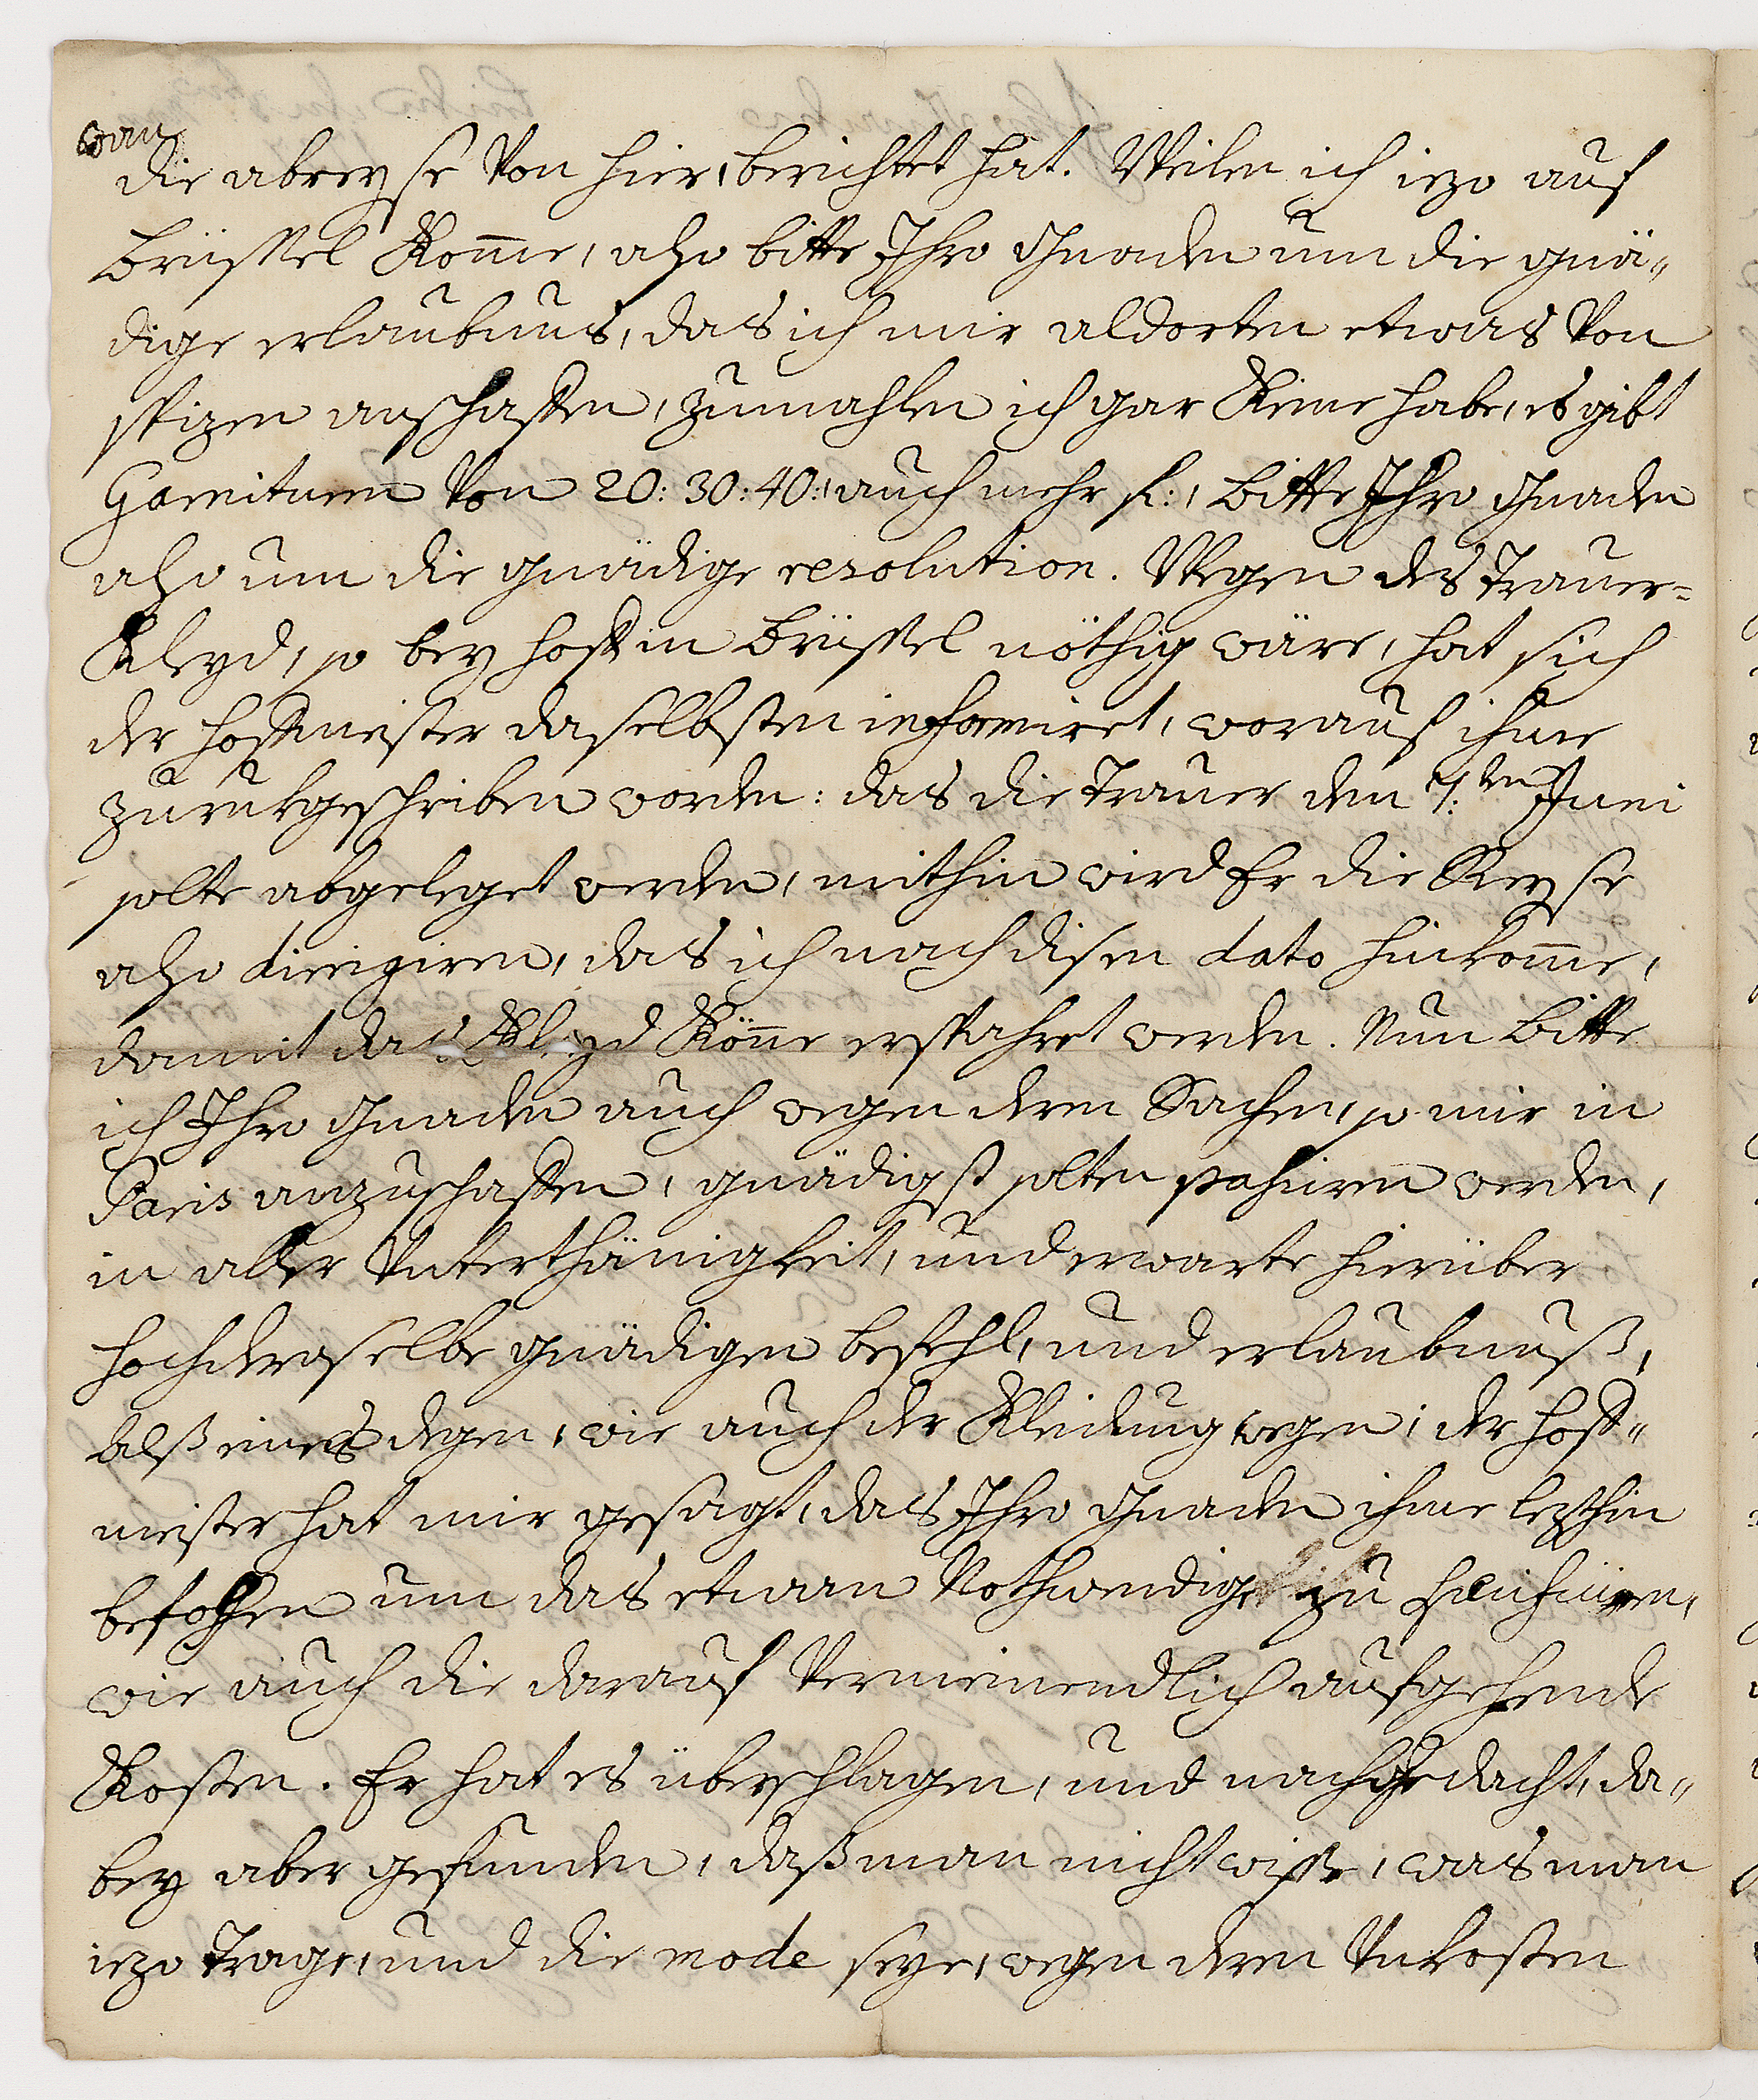 wan
die abreyse Von hier, berichtet hat. Weilen ich iezo auf
Brüssel Kom̅e, also bitte Ihro Gnaden um die gnä„
dige erlaubnus, das ich mir aldorten etwas Von
spizen anschaffen, zumahlen ich gar Keine habe, es gibt
Garnituren Von 20: 30: 40: auch mehr fl:, bitte Ihro Gnaden
also um die gnädige resolution. Wegen des Trauer=
Kleyd, so bey hoff in Brüssel nöthig wäre, hat sich
der hoffmeister daselbsten informiret, worauf ihme
zuruckgeschriben worden: das die Trauer den 7:ten Juni
solte abgeleget werden, mithin wird Er die Reyse
also dirigiren, das ich nach disen dato hinkom̅e,
damit das Kleyd Kön̅e erspahret werden. Nun bitte
ich Ihro Gnaden auch wegen deren Sachen, so mir in
Paris anzuschaffen, gnädigst solten pahsiren werden,
in aller Unterthänigkeit, und erwarte hierüber
hochderoselbe gnädigen befehl, und erlaubnuß,
alß eines degen, wie auch der Kleidung wegen; der hoff„
meister hat mir gesagt, das Ihro Gnaden ihme lezthin
befohlen um das etwan Nothwendige zu
wie auch die darauf Vermeinendlich aufgehende
Kosten. Er hat es überschlagen, und nachgedacht, da„
bey aber gefunden, daß man nicht wisse, was man
iezo trage, und die mode seye, wegen deren Unkosten